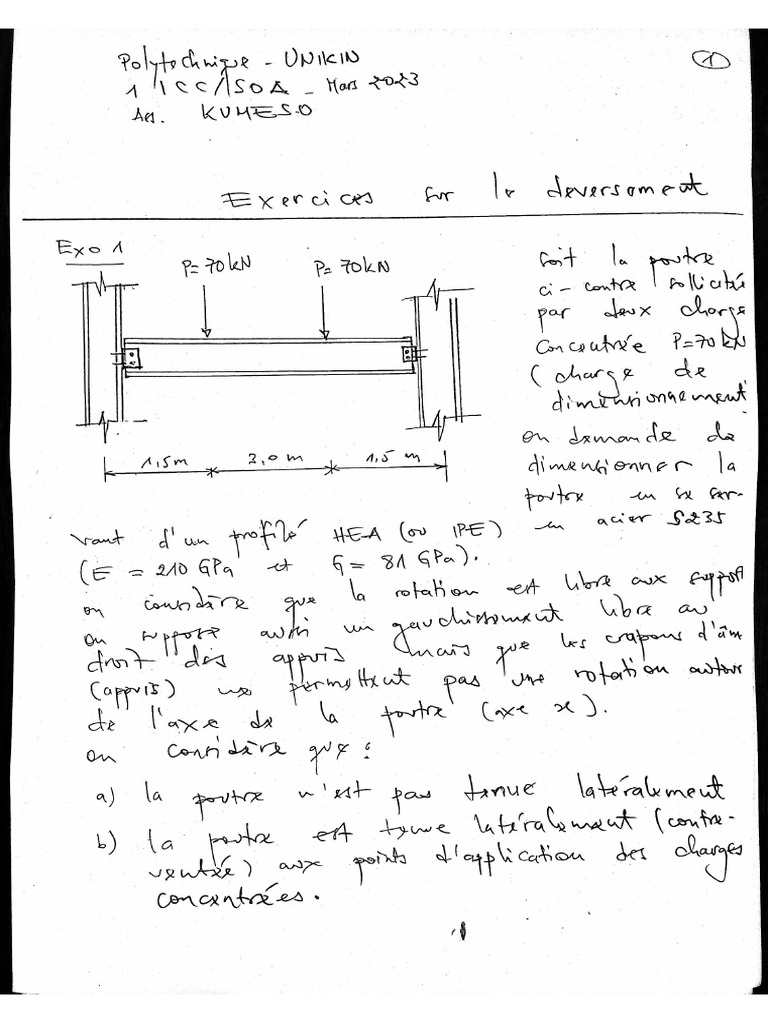 Polytechnique - UNIKIN
1
1 ICC/SOA - Mars 2023
Ass. KUMESO
Exercices sur le deversement
Exo 1
P= 70 kN
P= 70 kN
soit la poutre
ci-contre sollicitée
par deux charge
concentrée P=70 kN
(charge de
dimensionnement
on demande de
dimensionner la
poutre en se ser-
1,5m
3,0 m
1,5 m
vant d'un profilé HEA (ou IPE) en acier S235
(E = 210 GPa et G = 81 GPa).
on considère que la rotation est libre aux support
on suppose aussi un gauchissement libre au
droit des appuis mais que les crapons d'âm
(appuis) ne permettent pas une rotation autour
de l'axe de la poutre (axe x).
on considère que :
a) la poutre n'est pas tenue latéralement
b) la poutre est tenue latéralement (contre-
ventée) aux points d'application des charges
concentrées.